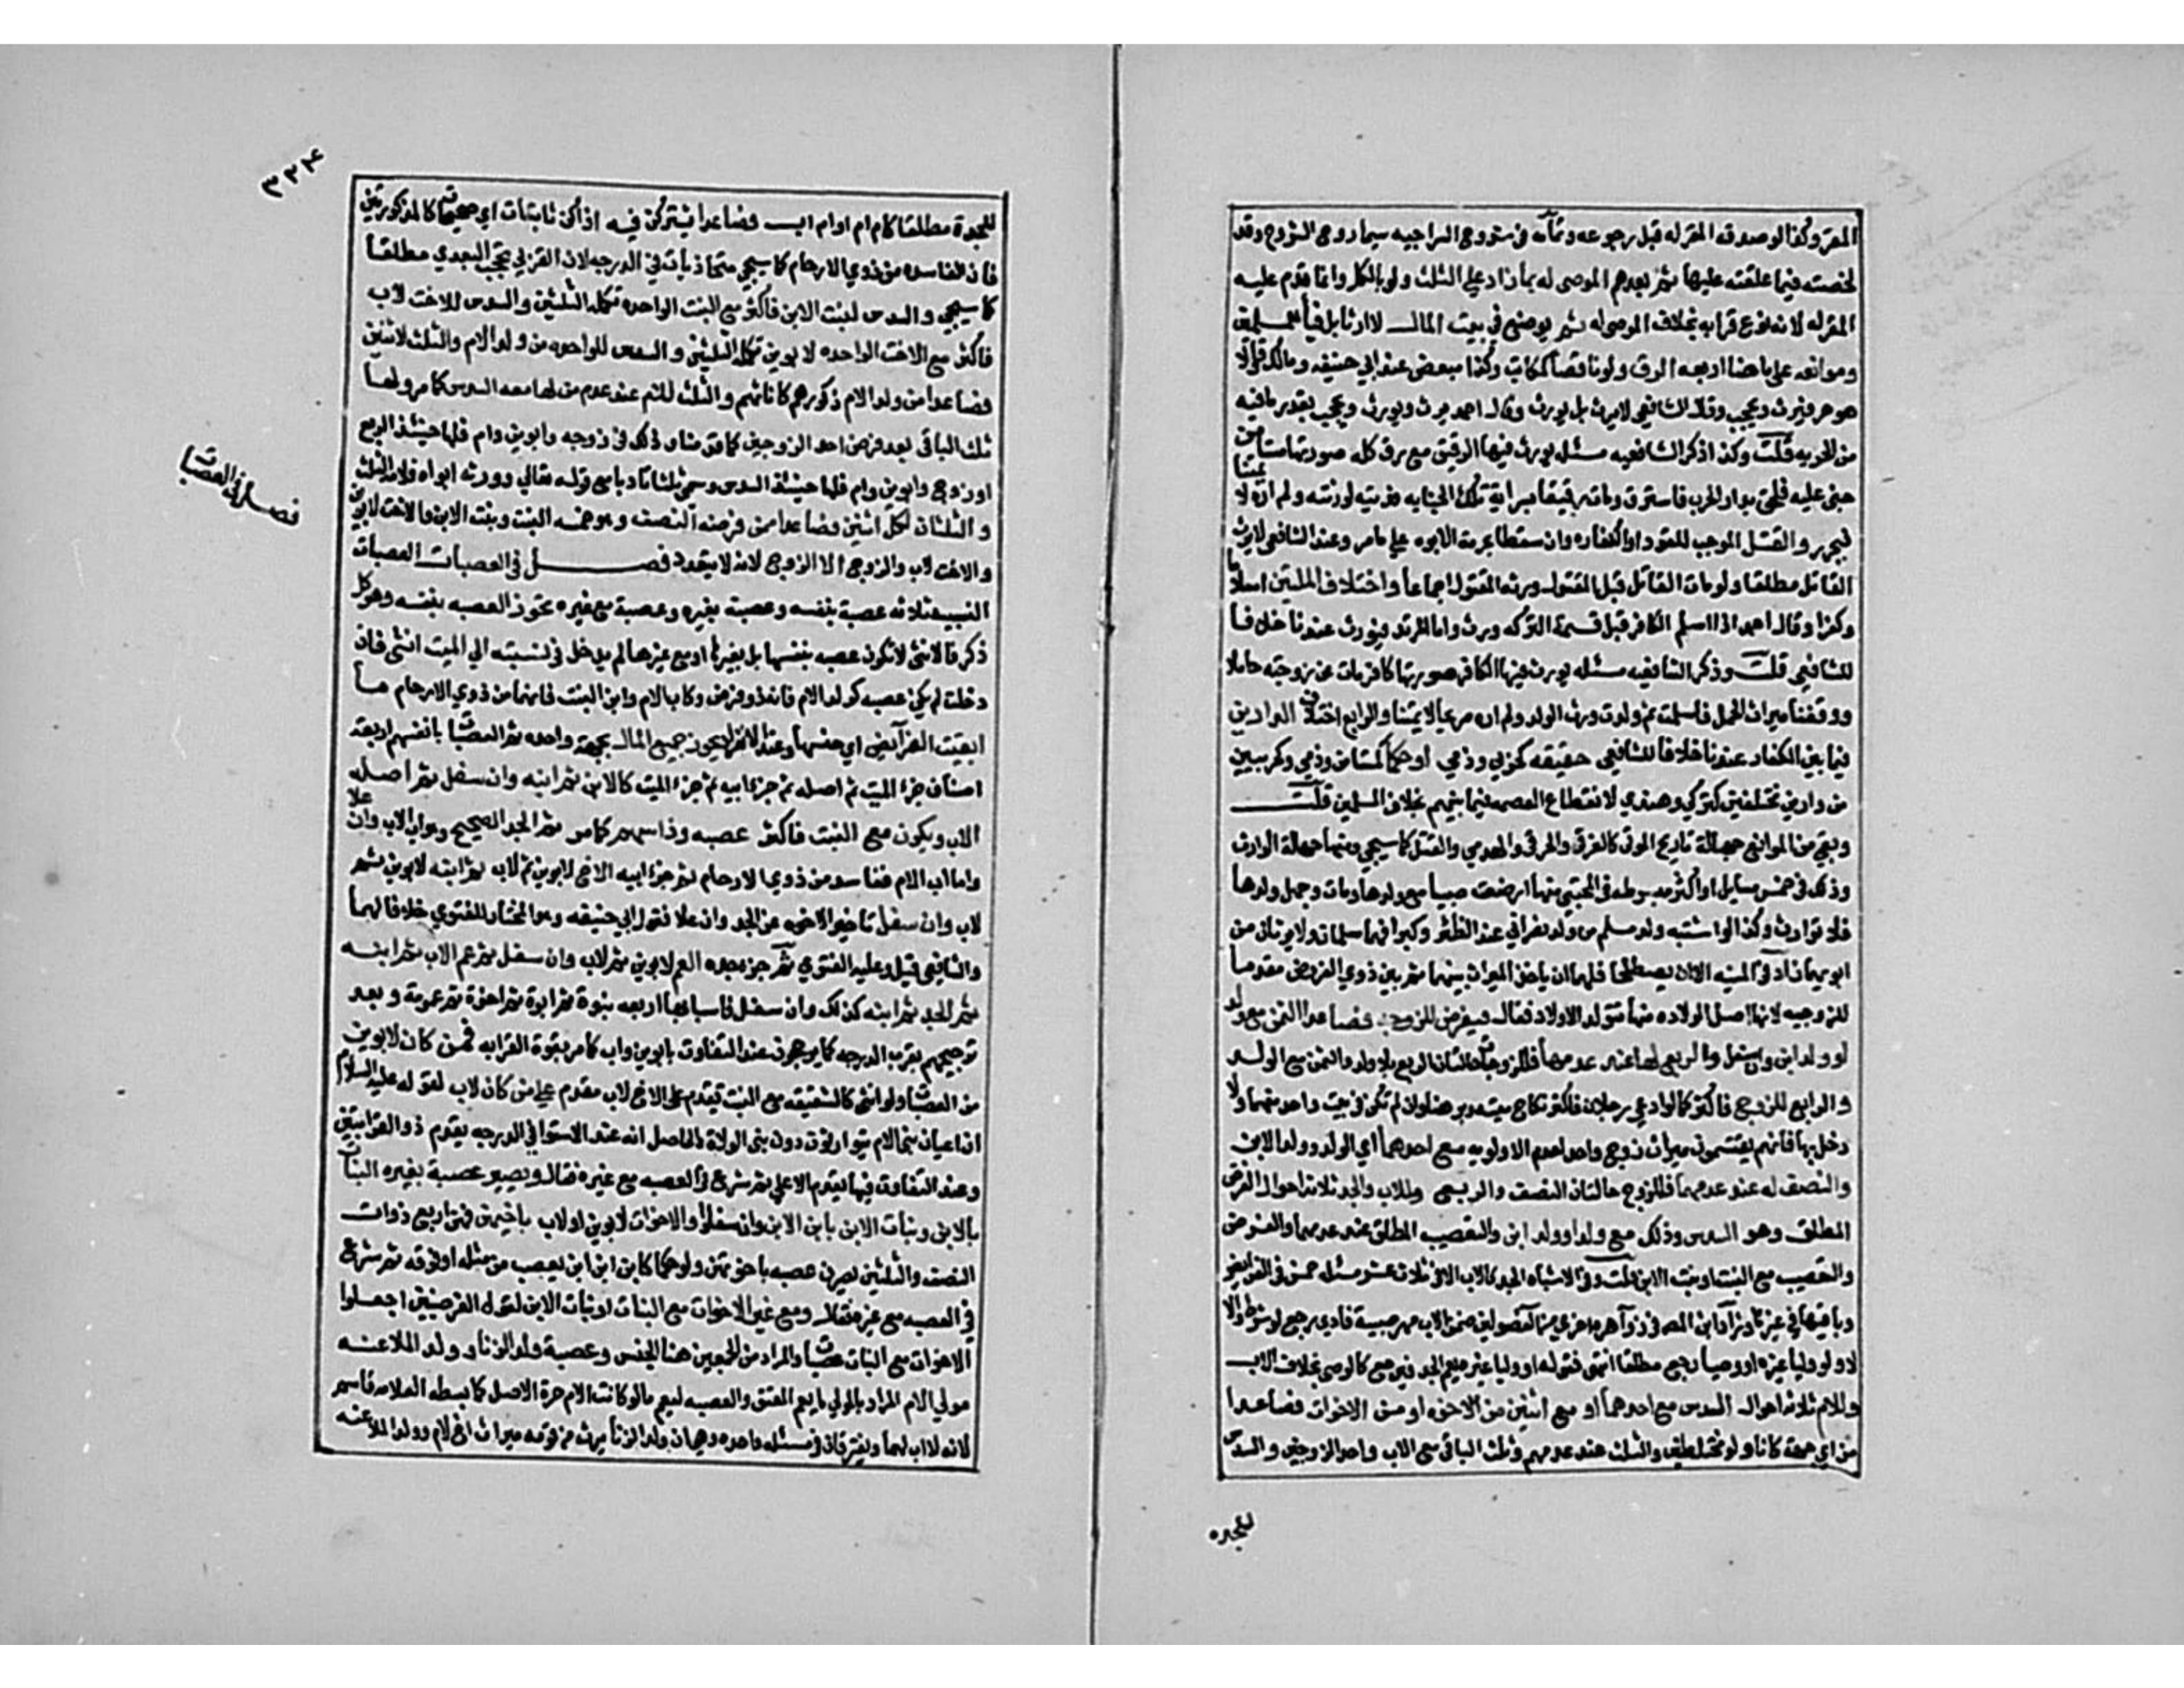 المقر وكذا لو صدقه المقر له قبل رجوعه وتمامه في شروح السراجيه سيما روح الشروح وقد
لخصته فيما علقته عليها ثم بعدهم الموصى له بما زاد على الثلث ولو بالكل وانما قدم عليه
المقر له لانه نوع قرابه بخلاف الموصى له ثم يوضع في بيت المال لا ارثا بل فيأ للمسلمين
وموانعه على ما هنا اربعه الرق ولو ناقصا كمكاتب وكذا مبعض عند ابي حنيفه ومالك وقالا
هو حر فيرث ويحجب وقال الشافعي لا يرث بل يورث وقال احمد يرث ويورث ويحجب بقدر ما فيه
من الحريه قلت وكذا ذكر الشافعيه مسئله يورث فيها الرقيق مع رق كله صورتها مستامن
جنى عليه فلحق بدار الحرب فاسترق ومات رقيقا بسراية تلك الجنايه فديته لورثته ولم اره لائمتنا
فيحرر والقتل الموجب للقود او الكفاره وان سقطا بحرمة الابوه على ما مر وعند الشافعي لا يرث
القاتل مطلقا ولو مات القاتل قبل المقتول ورثه المقتول اجماعا واختلاف الملتين اسلاما
وكفرا وقال احمد اذا اسلم الكافر قبل قسمة التركه ورث واما المرتد فيورث عندنا خلافا
للشافعي قلت وذكر الشافعيه مسئله يورث فيها الكافر صورتها كافر مات عن زوجته حاملا
ووقفنا ميراث الحمل فاسلمت ثم ولدت ورث الولد ولم اره صريحا لائمتنا والرابع اختلاف الدارين
فيما بين الكفار عندنا خلافا للشافعي حقيقه كحربي وذمي او حكما كمستامن وذمي وكحربيين
من دارين مختلفتين كتركي وهندي لانقطاع العصمه فيما بينهم بخلاف المسلمين قلت
وبقي من الموانع جهالة تاريخ الموتى كالغرقى والحرقى والهدمى والقتلى كما سيجي ومنها جهالة الوارث
وذلك في خمس مسايل او اكثر مبسوطه في المجتبى منها ارضعت صبيا مع ولدها وماتت وجهل ولدها
فلا توارث وكذا لو اشتبه ولد مسلم من ولد نصراني عند الظئر وكبرا فهما مسلمان ولا يرثان من
ابويهما زاد في المنيه الا ان يصطلحا فلهما ان ياخذا الميراث بينهما ثم بين ذوي الفروض مقدما
للزوجيه لانها اصل الولاده منها تتولد الاولاد فقال فيفرض للزوجه فصاعدا الثمن مع ولد
او ولد ابن وان سفل والربع لها عند عدمهما فللزوجات حالتان الربع بلا ولد والثمن مع الولد
والرابع للزوج فاكثر كما لو ادعى رجلان فاكثر نكاح ميته وبرهنا ولم تكن في بيت واحد منهما ولا
دخل بها فانهم يقتسمون ميراث زوج واحد لعدم الاولويه مع احدهما اي الولد وولد الابن
والنصف له عند عدمهما فللزوج حالتان النصف والربع وللاب والجد ثلاث احوال الفرض
المطلق وهو السدس وذلك مع ولد او ولد ابن والتعصيب المطلق عند عدمهما والفرض
والتعصيب مع البنت او بنت الابن قلت وفي الاشباه الجد كالاب الا في ثلاث عشر مسئله خمس في الفرايض
وباقيها في غيرها وزاد ابن المصنف في زواهره اخرى من الفصولين ضمن الاب مهر صبيه فادى رجع لو شرط والا
لا ولو وليا غيره او وصيا رجع مطلقا انتهى فقوله او وليا غيره يعم الجد فيرجع كالوصي بخلاف الاب
وللام ثلاثة احوال السدس مع احدهما او مع اثنين من الاخوه او من الاخوات فصاعدا
من اي جهة كانا ولو مختلطين والثلث عند عدمهم وثلث الباقي مع الاب واحد الزوجين والسدس
للجده
٣٣٤
للجدة مطلقا كام ام او ام اب فصاعدا يشتركن فيه اذا كن ثابتات اي صحيحات كالمذكورتين
فان الفاسده من ذوي الارحام كما سيجي متحاذيات في الدرجه لان القربى تحجب البعدى مطلقا
كما سيجي والسدس لبنت الابن فاكثر مع البنت الواحده تكمله الثلثين والسدس للاخت لاب
فاكثر مع الاخت الواحده لابوين تكمله الثلثين والسدس للواحد من ولد الام والثلث لاثنين
فصاعدا من ولد الام ذكورهم كاناثهم والثلث للام عند عدم من لها معه السدس كما مر ولها
ثلث الباقي بعد فرض احد الزوجين كما قدمنا وذلك في زوجه وابوين وام فلها حينئذ الربع
او زوج وابوين وام فلها حينئذ السدس وسمي ثلثا تادبا مع قوله تعالى وورثه ابواه فلامه الثلث
والثلثان لكل اثنين فصاعدا ممن فرضه النصف وهو خمسه البنت وبنت الابن والاخت لابوين
والاخت لاب والزوج الا الزوج لانه لا يتعدد فصل في العصبات العصبات
فصل في العصبات
النسبيه ثلاثه عصبة بنفسه وعصبة بغيره وعصبة مع غيره يحوز العصبه بنفسه وهو كل
ذكر فالانثى لا تكون عصبه بنفسها بل بغيرها او مع غيرها لم يدخل في نسبته الى الميت انثى فان
دخلت لم يكن عصبه كولد الام فانه ذو فرض وكاب الام وابن البنت فانهما من ذوي الارحام ما
ابقت الفرائض اي جنسها وعند الانفراد يحوز جميع المال بجهة واحده ثم العصبات بانفسهم اربعة
اصناف جزء الميت ثم اصله ثم جزء ابيه ثم جزء الميت كالابن ثم ابنه وان سفل ثم اصله
الاب ويكون مع البنت فاكثر عصبه وذا سهم كما مر ثم الجد الصحيح وهو اب الاب وان علا
واما اب الام ففاسد من ذوي الارحام ثم جزء ابيه الاخ لابوين ثم لاب ثم ابنه لابوين ثم
لاب وان سفل تاخير الاخوه عن الجد وان علا قول ابي حنيفه وهو المختار للفتوى خلافا لهما
والشافعي قيل وعليه الفتوى ثم جزء جده العم لابوين ثم لاب وان سفل ثم عم الاب ثم ابنه
ثم الجد ثم ابنه كذلك وان سفل فاسبابها اربعه بنوة ثم ابوة ثم اخوة ثم عمومة وبعد
ترجيحهم بقرب الدرجه كما يرجحون عند التفاوت بابوين واب كما مر بقوة القرابه فمن كان لابوين
من العصبات ولو انثى كالشقيقه مع البنت تقدم على الاخ لاب مقدم على من كان لاب لقوله عليه السلام
ان اعيان بني الام يتوارثون دون بني العلات والحاصل انه عند الاستوا في الدرجه يقدم ذو القرابتين
وعند التفاوت فيها يقدم الاعلى ثم شرع في العصبه مع غيره فقال ويصير عصبة بغيره البنات
بالابن وبنات الابن بابن الابن وان سفلوا والاخوات لابوين او لاب باخيهن فهن اربع ذوات
النصف والثلثين يصرن عصبه باخوتهن ولو حكما كابن ابن ابن يعصب من مثله او فوقه ثم شرع
في العصبه مع غيره فقال ومع غيره الاخوات مع البنات او بنات الابن لقول الفرضيين اجعلوا
الاخوات مع البنات عصبات والمراد من الجمعين هنا الجنس وعصبة ولد الزنا وولد الملاعنه
مولى الام المراد بالمولى ما يعم المعتق والعصبه ليعم ما لو كانت الام حرة الاصل كما بسطه العلامه قاسم
لانه لا اب لهما ويفترقان في مسئله واحده وهي ان ولد الزنا يرث من توءمه ميراث اخ لام وولد الملاعنه